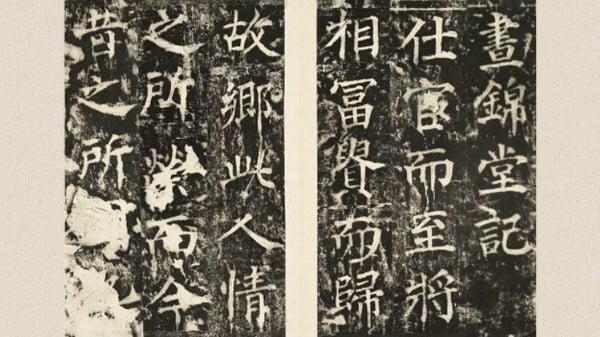 晝錦堂記
仕宦而至將
相冨貴而歸
故鄉此人情
之所榮而今
昔之所